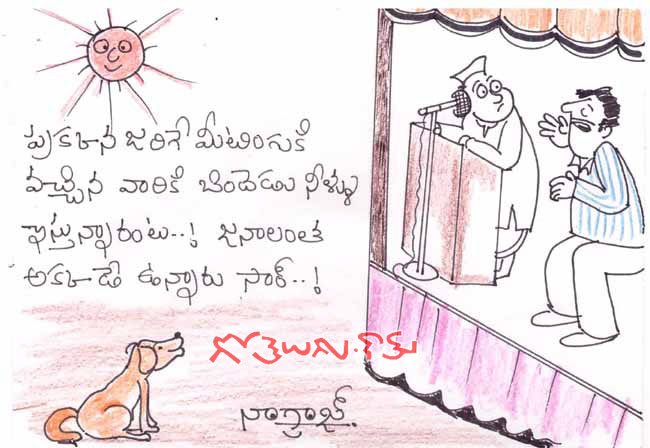 ప్రక్కన జరిగే మీటింగుకి
వచ్చిన వారికి బిందెడు నీళ్ళు
ఇస్తున్నారంట..! జనాలంత
అక్కడే ఉన్నారు సార్..!
గోతెలుగు.కామ్
నాగ్రాజ్.